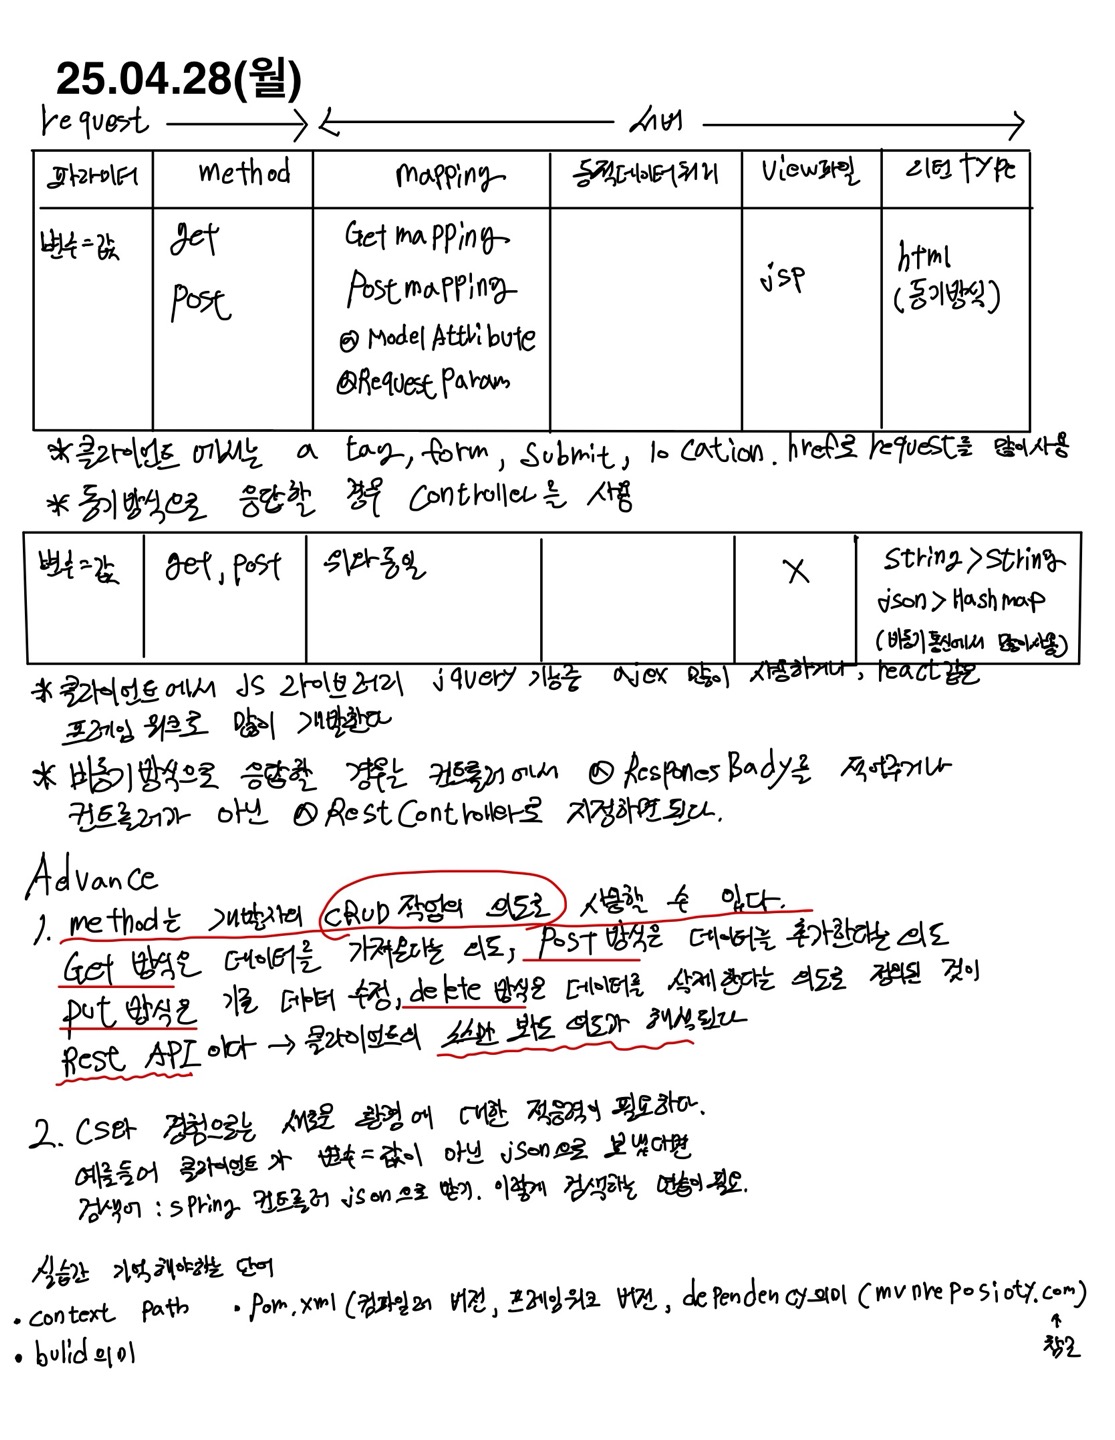 25.04.28(월)
request → ← 서버 →
파라미터 method mapping 동적데이터처리 view파일 리턴 type
변수=값 get Getmapping jsp html
post Postmapping (동기방식)
@ModelAttribute
@RequestParam
*클라이언트에서는 a tag, form, submit, location.href로 request를 많이사용
*동기방식으로 응답할 경우 controller를 사용
변수=값 get, post 위와동일 X string>String
json>Hashmap
(비동기통신에서 많이사용)
*클라이언트에서 JS 라이브러리 jquery 기능중 ajex 많이 사용하거나, react같은
프레임워크로 많이 개발한다
*비동기방식으로 응답할 경우는 컨트롤러에서 @ResponesBady를 적어주거나
컨트롤러가 아닌 @RestController로 지정하면된다.
Advance
1. method는 개발자의 CRUD작업의 의도로 사용할 수 있다.
Get 방식은 데이터를 가져온다는 의도, Post방식은 데이터를 추가한다는 의도
put 방식은 기존 데이터 수정, delete 방식은 데이터를 삭제한다는 의도로 정의된 것이
Rest API이다 → 클라이언트의 소스만 봐도 의도가 해석된다
2. CS와 경험으로는 새로운 환경에 대한 적응력이 필요하다.
예를들어 클라이언트가 변수=값이 아닌 json으로 보냈다면
검색어 : spring 컨트롤러 json으로 받기. 이렇게 검색하는 연습이 필요.
실습간 기억해야하는 단어
• context path • Pom.xml (컴파일러 버전, 프레임워크 버전, dependency의미 (mvnreposioty.com)
↑
참고
• bulid의미